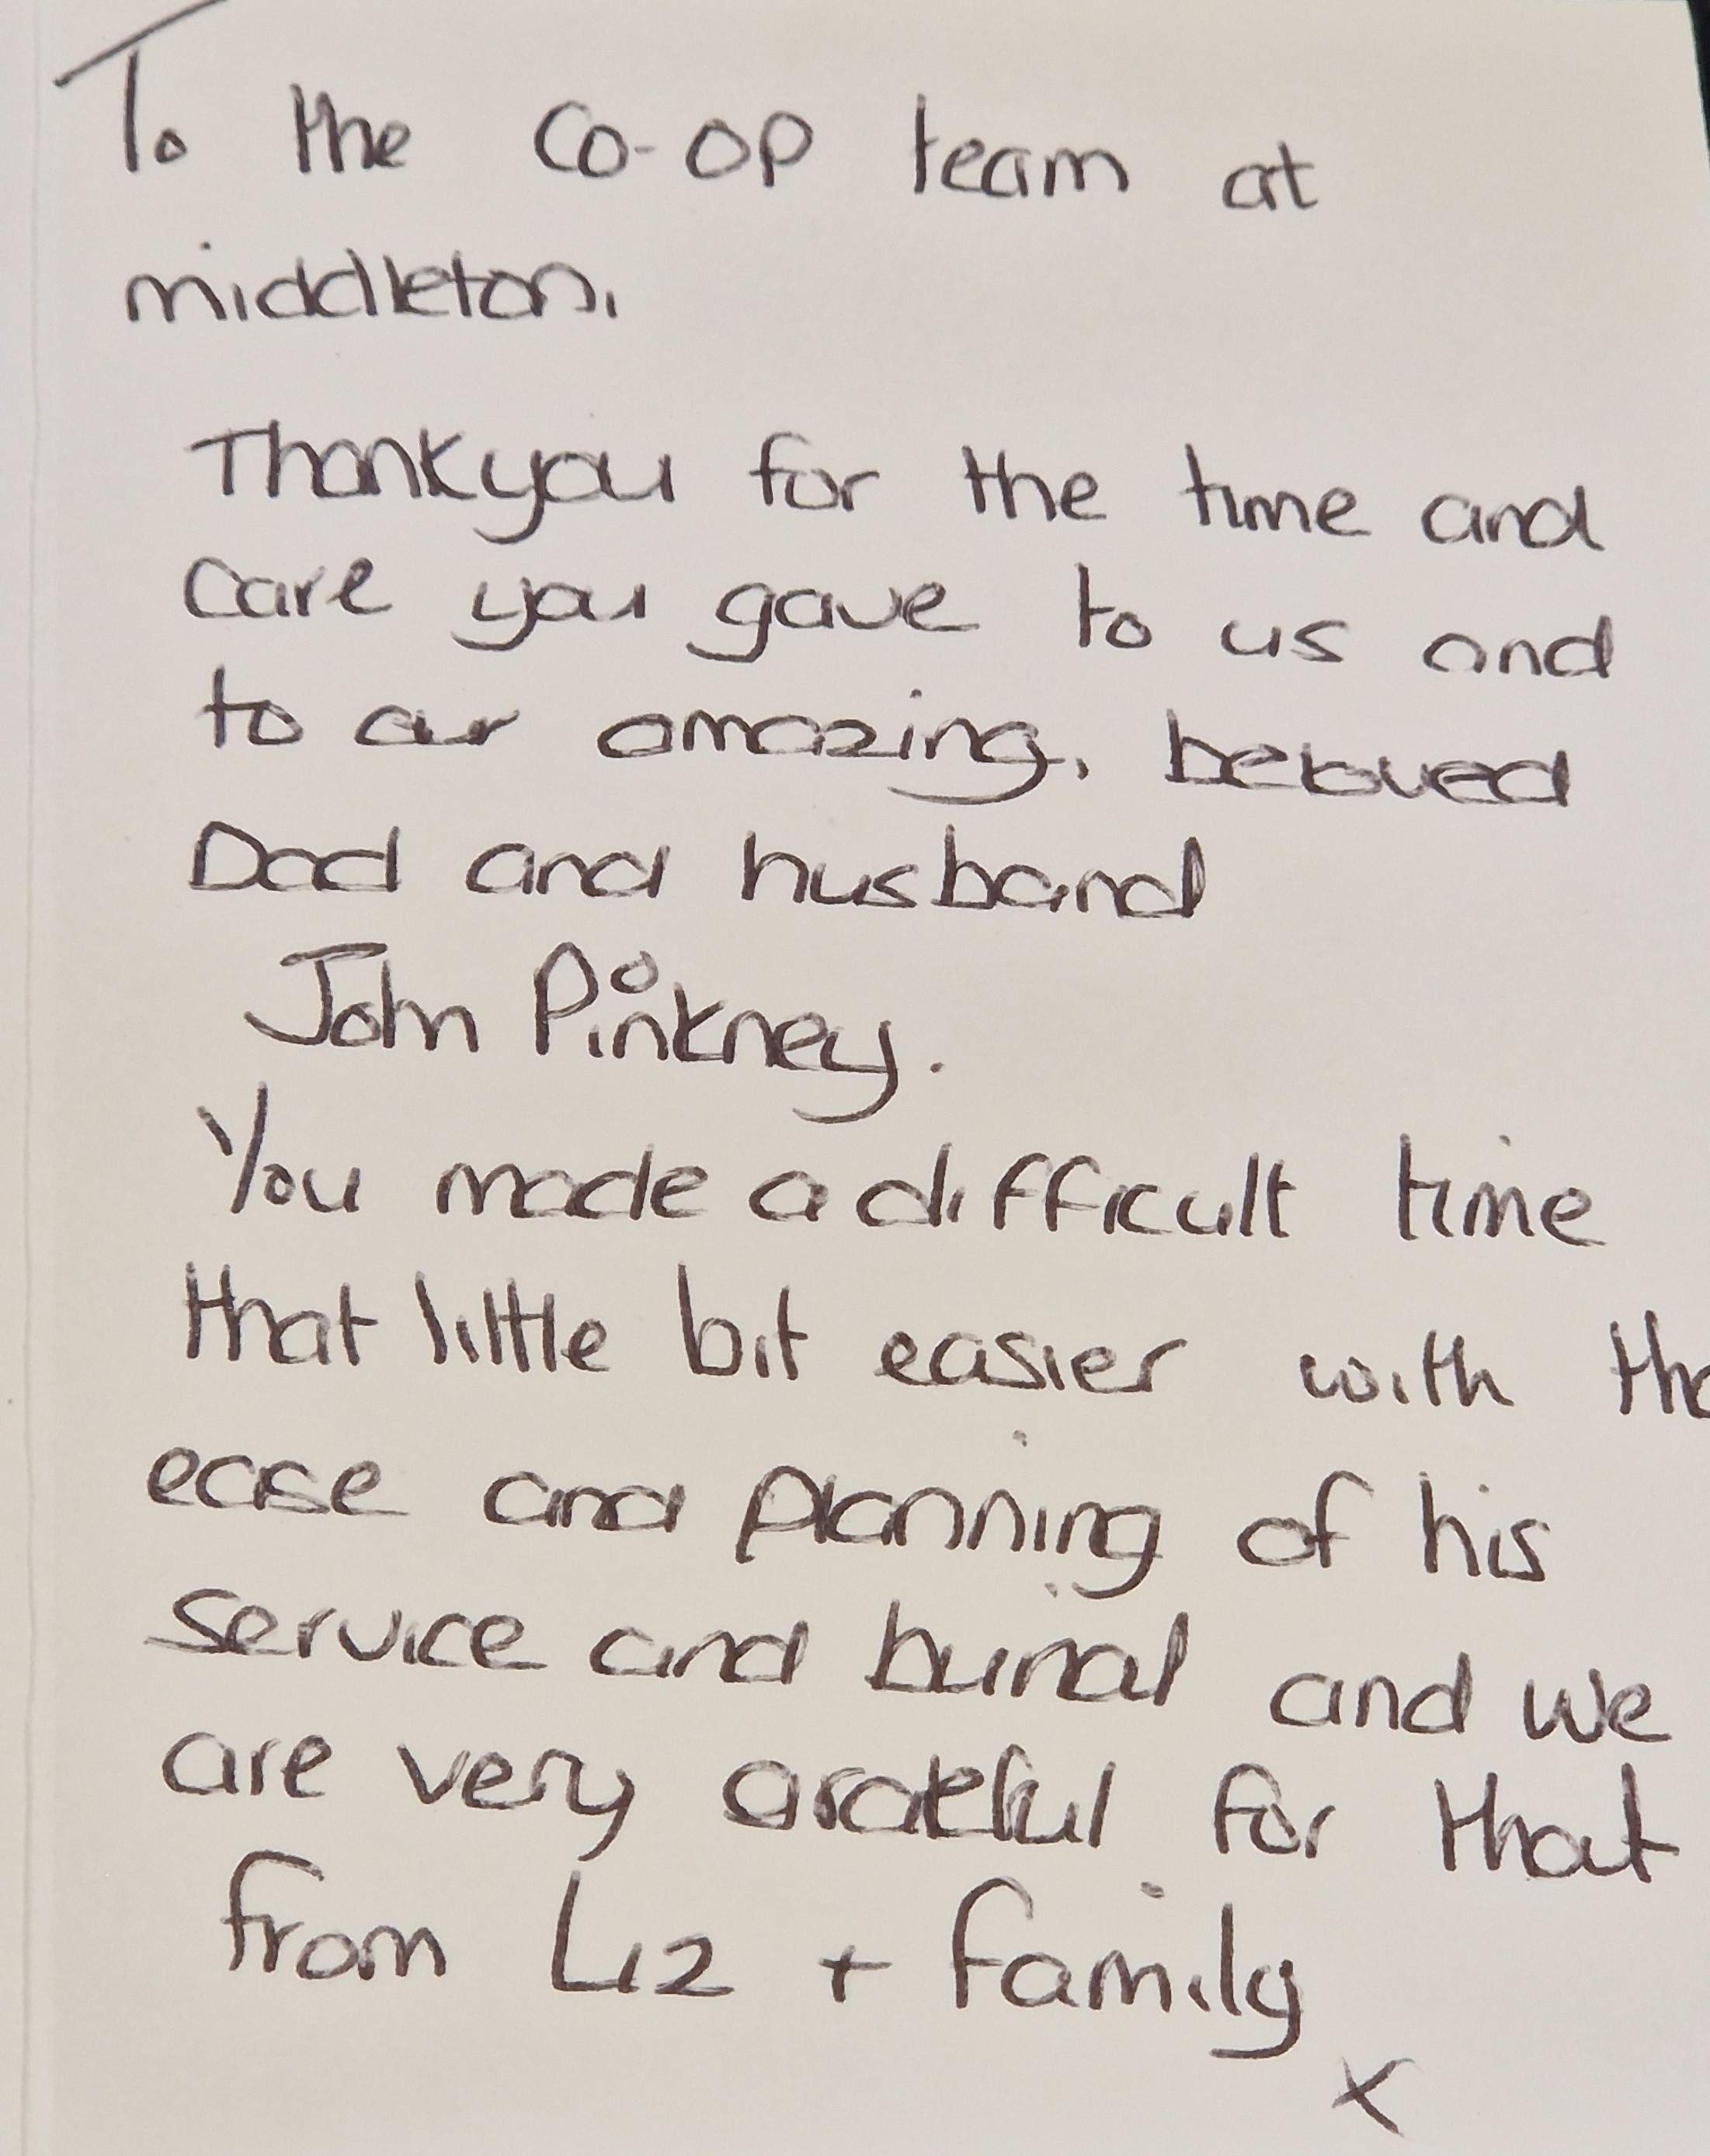 To the Co-op team at
middleton,
Thankyou for the time and
care you gave to us and
to our amazing, beloved
Dad and husband
John Pinkney.
You made a difficult time
that little bit easier with
ease and planning of his
service and burial and we
are very grateful for that
from Liz + family
x